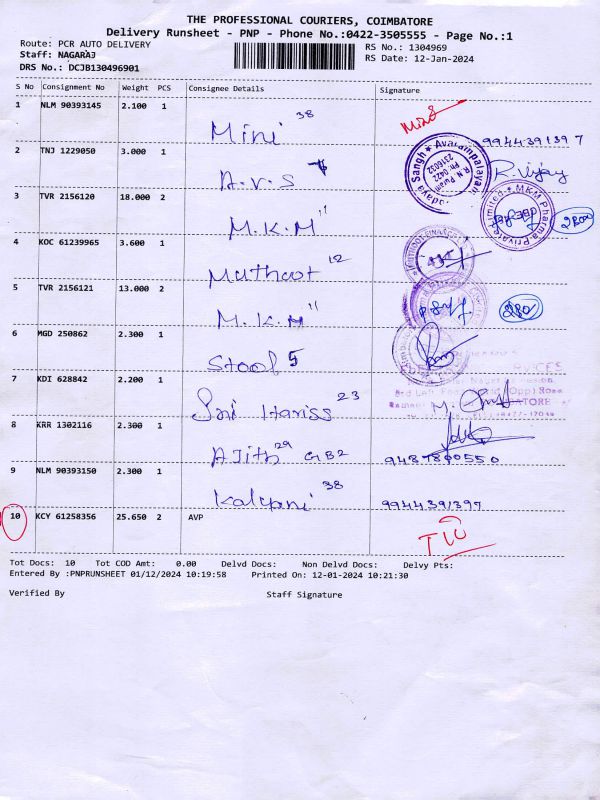 THE PROFESSIONAL COURIERS, COIMBATORE
Delivery Runsheet - PNP - Phone No.:0422-3505555 - Page No.:1
Route: PCR AUTO DELIVERY
RS No.: 1304969
Staff: NAGARAJ
RS Date: 12-Jan-2024
DRS No.: DCJB130496901
S No Consignment No Weight PCS Consignee Details Signature
1 NLM 90393145 2.100 1 Mini 38
9944391397
2 TNJ 1229050 3.000 1 A.V.S 7
R. Vijay
3 TVR 2156120 18.000 2 M.K.M 11
4 KOC 61239965 3.600 1 Muthoot 12
5 TVR 2156121 13.000 2 M.K.M 11
6 MGD 250862 2.300 1 5
7 KDI 628842 2.200 1 Sri Hariss 23
8 KRR 1302116 2.300 1 Ajith 29 GB2
9487800550
9 NLM 90393150 2.300 1 Kalyani 38
9944391397
10 KCY 61258356 25.650 2 AVP
Tot Docs: 10 Tot COD Amt: 0.00 Delvd Docs: Non Delvd Docs: Delvy Pts:
Entered By :PNPRUNSHEET 01/12/2024 10:19:58 Printed On: 12-01-2024 10:21:30
Verified By Staff Signature